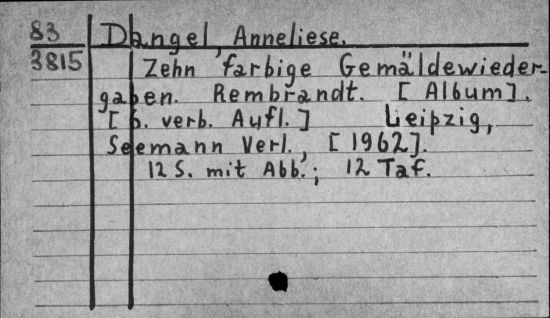 83 Dangel, Anneliese.
3815 Zehn farbige Gemäldewieder-
gaben. Rembrandt. [Album].
[6. verb. Aufl.] Leipzig,
Seemann Verl., [1962].
12 S. mit Abb.; 12 Taf.